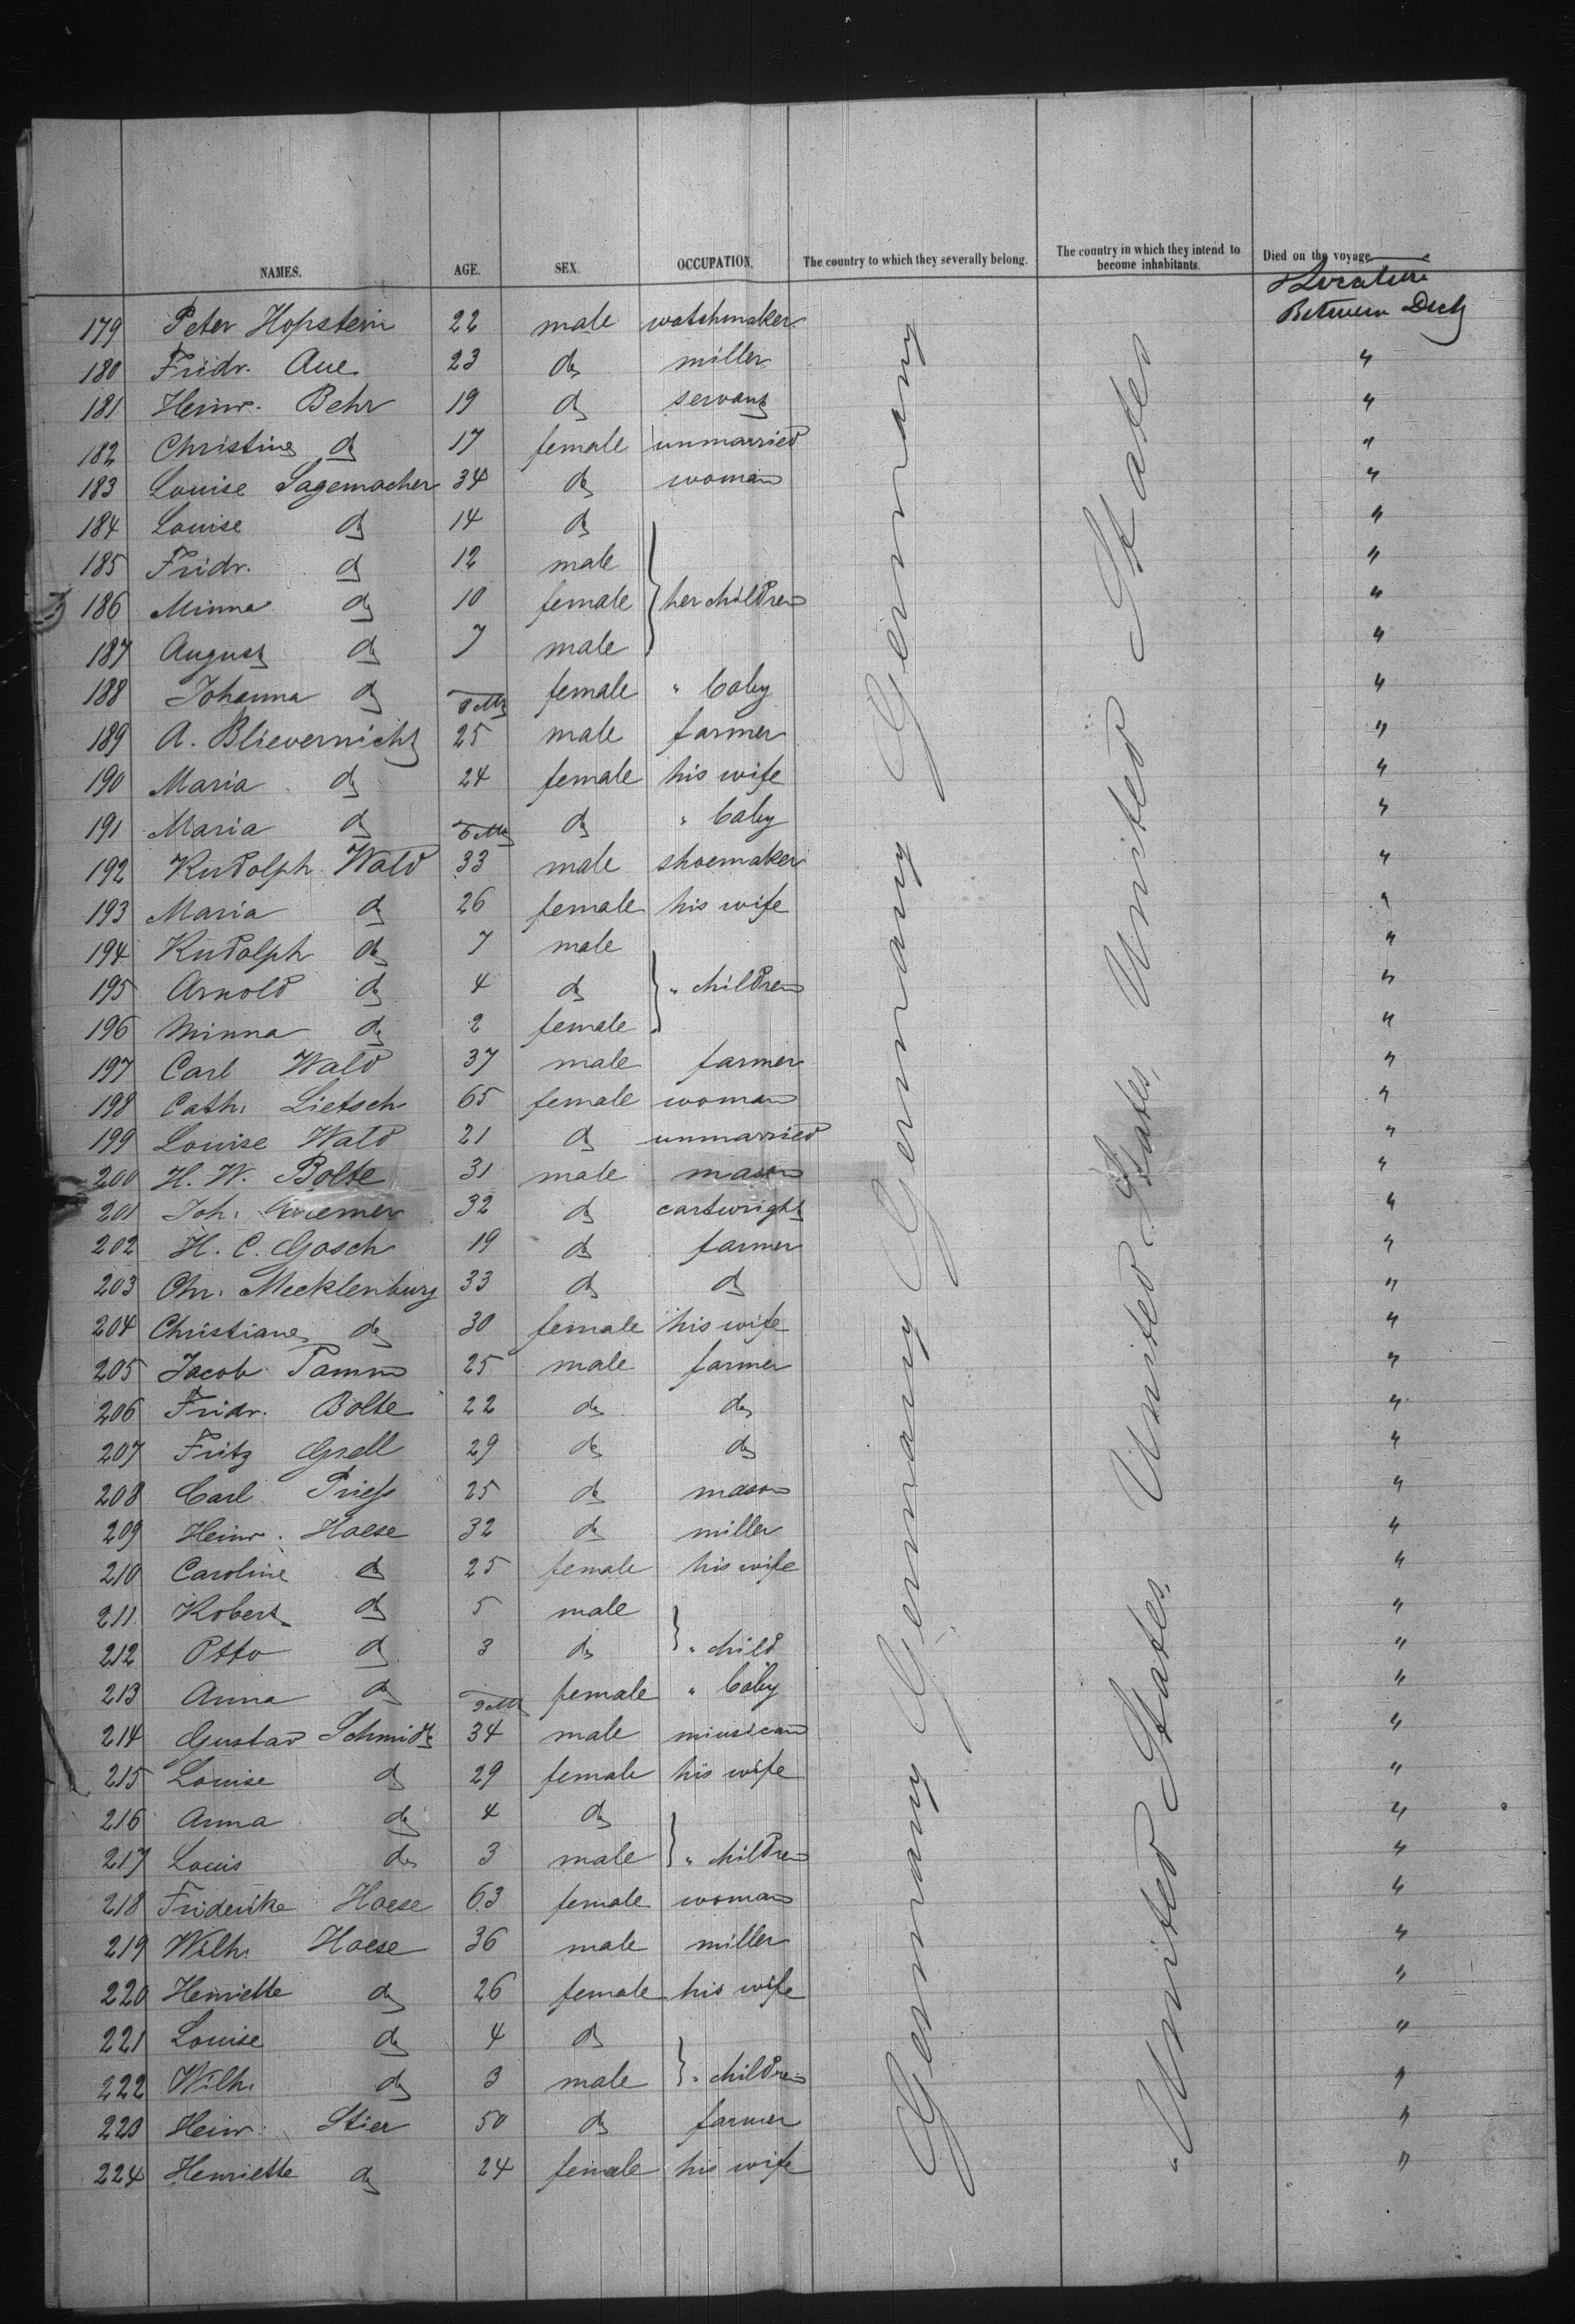 NAMES. AGE. SEX. OCCUPATION. The country to which they severally belong. The country in which they intend to become inhabitants. Died on the voyage
Location
179 Peter Hopstein 22 male watchmaker Between Deck
180 Fridr. Aue 23 do miller "
181 Heinr. Behr 19 do servant "
182 Christine do 17 female unmarried "
183 Louise Sagemacher 34 do woman "
184 Louise do 14 do "
185 Fridr. do 12 male "
186 Minna do 10 female her children "
187 August do 7 male "
188 Johanna do female " baby "
189 A. Blievernicht 25 male farmer "
190 Maria do 24 female his wife "
191 Maria do do " baby "
192 Rudolph Wald 33 male shoemaker "
193 Maria do 26 female his wife "
194 Rudolph do 7 male "
195 Arnold do 4 do " children "
196 Minna do 2 female "
197 Carl Wald 37 male farmer "
198 Cath. Lietsch 65 female woman "
199 Louise Wald 21 do unmarried "
200 H. W. Bolte 31 male mason "
201 Joh. 32 do cartwright "
202 H. C. Gosch 19 do farmer "
203 Chr. Mecklenburg 33 do do "
204 Christiane do 30 female his wife "
205 Jacob Tamm 25 male farmer "
206 Fridr. Bolte 22 do do "
207 Fritz Grell 29 do do "
208 Carl Priess 25 do mason "
209 Heinr. Haese 32 do miller "
210 Caroline do 25 female his wife "
211 Robert do 5 male "
212 Otto do 3 do " child "
213 Anna do female " baby "
214 Gustav Schmidt 34 male miusican "
215 Louise do 29 female his wife "
216 Anna do 4 do "
217 Louis do 3 male " children "
218 Friderike Haese 63 female woman "
219 Wilh. Haese 36 male miller "
220 Henriette do 26 female his wife "
221 Louise do 4 do "
222 Wilh. do 3 male " children "
223 Heinr. Stier 50 do farmer "
224 Henriette do 24 female his wife "
Germany Germany Germany Germany Germany
United States United States, United States,